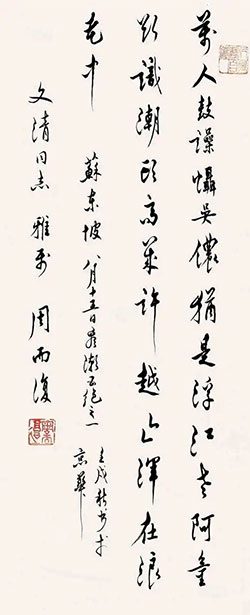 萬人鼓譟懾吳儂猶是浮江老阿童
欲識潮頭高幾許越山渾在浪
花中 蘇東坡八月十五日看潮五絕之一
壬戌書於
京華
文清同志雅 周而復